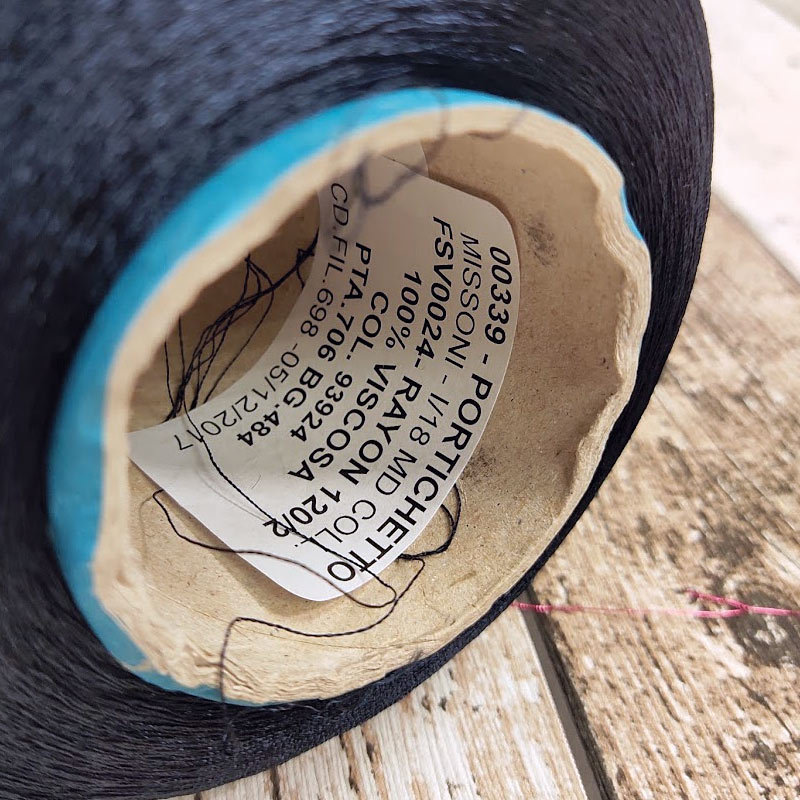 00339 - PORTICHETTO
MISSONI - I/18 MD COLL.
FSV0024- RAYON 120/2
100% VISCOSA
COL. 93924
PTA.706 BG.484
CD.FIL.698 -05/12/2017